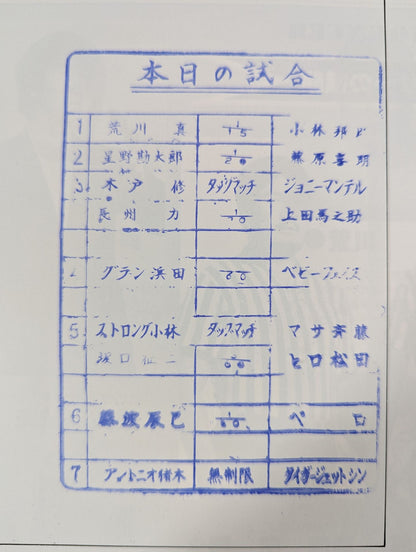 本日の試合
1 荒川 真 1/15 小林邦
2 星野勘太郎 1/20 藤原喜明
3 木戸 修 タッグマッチ ジョニーマンテル
長州 力 上田馬之助
グラン浜田 ベビーフェイス
5 ストロング小林 タッグマッチ マサ斉藤
坂口征二 ヒロ松田
6 藤波辰巳 1/60 ペロ
7 アントニオ猪木 無制限 タイガージェットシン